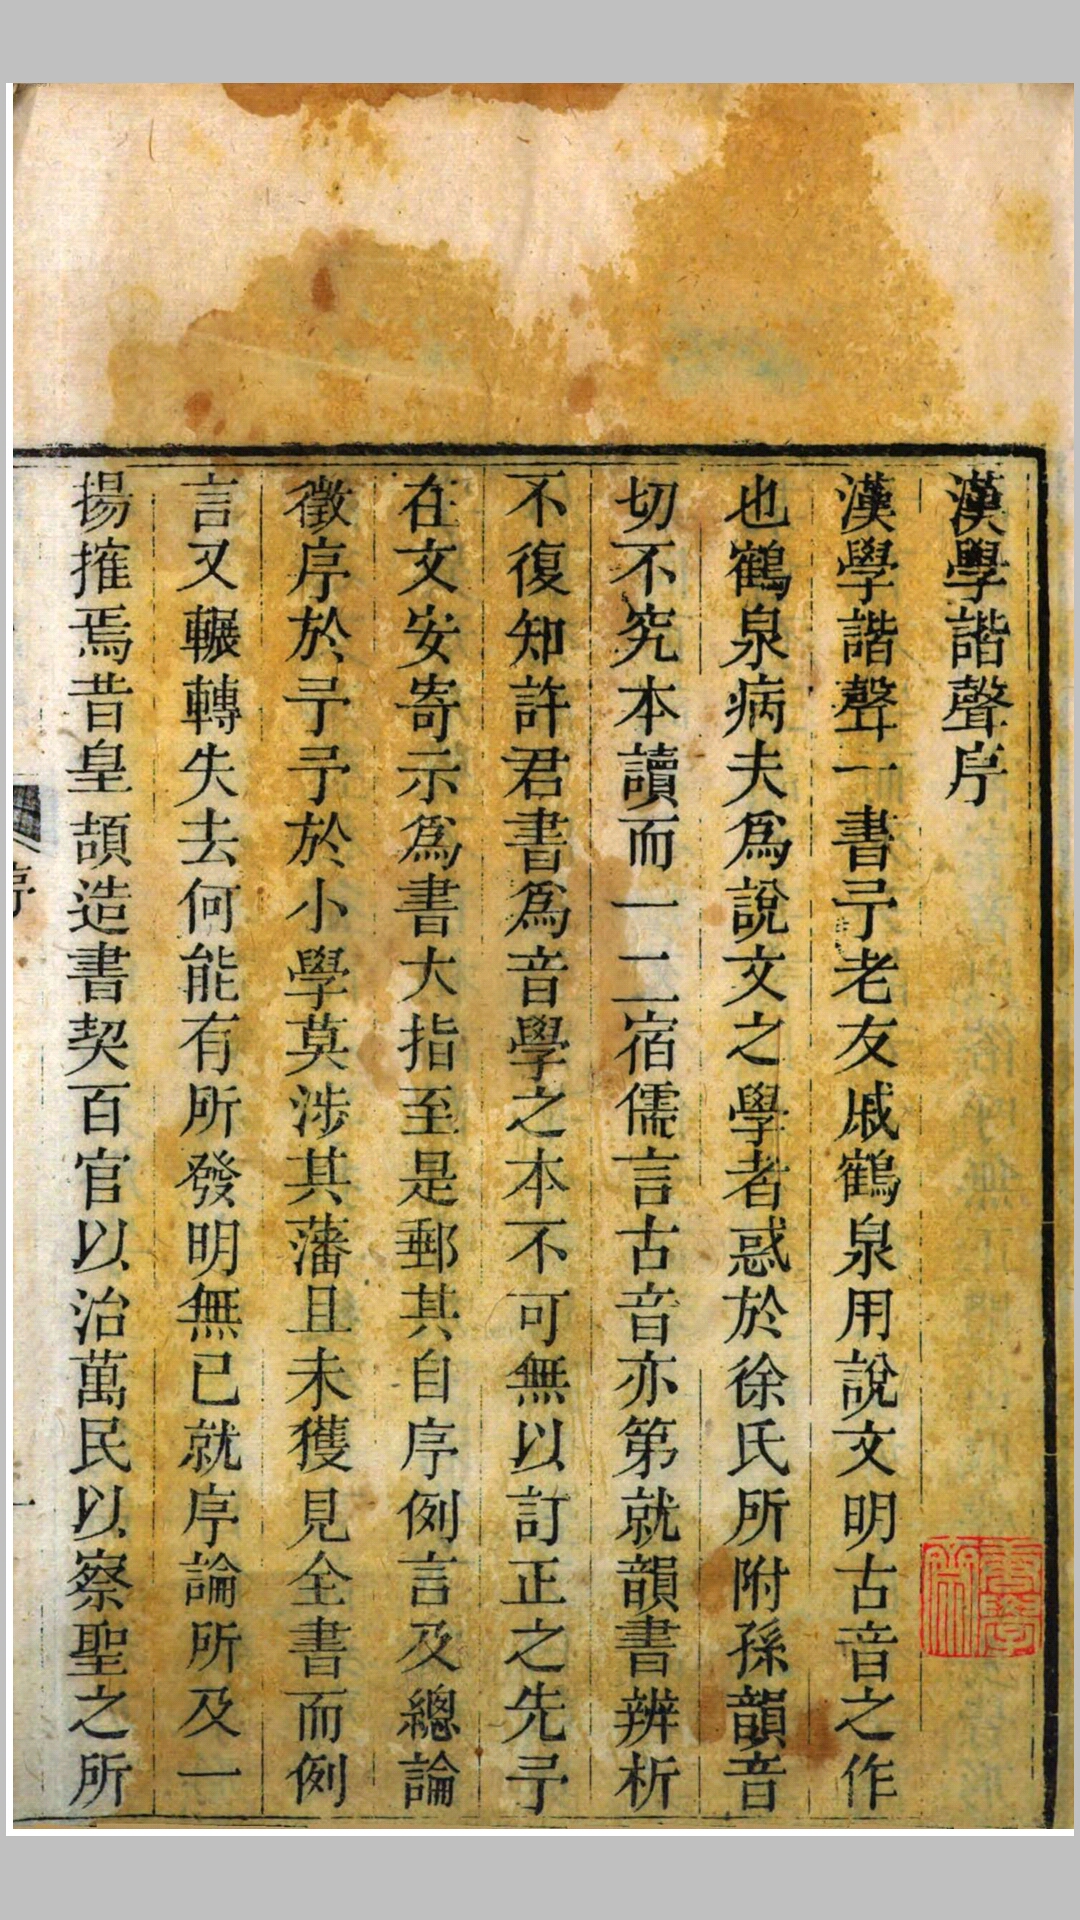 漢學諧聲序
漢學諧聲一書予老友戚鶴泉用說文明古音之作
也鶴泉病夫爲說文之學者惑於徐氏所附孫韻音
切不究本讀而一二宿儒言古音亦第就韻書辨析
不復知許君書爲音學之本不可無以訂正之先予
在文安寄示爲書大指至是郵其自序例言及總論
徵序於予予於小學莫涉其藩且未獲見全書而例
言又輾轉失去何能有所發明無已就序論所及一
揚搉焉昔皇頡造書契百官以治萬民以察聖之所
序
一